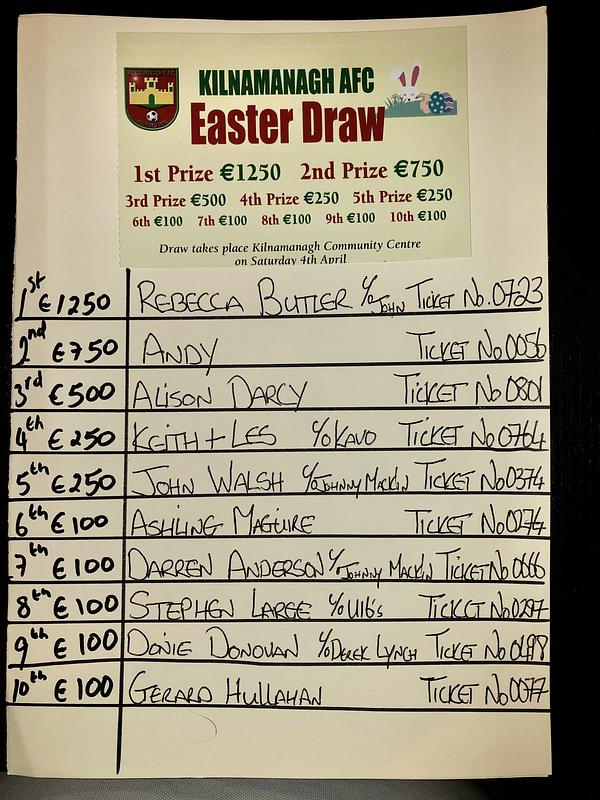 KILNAMANAGH AFC
Easter Draw
1st Prize €1250 2nd Prize €750
3rd Prize €500 4th Prize €250 5th Prize €250
6th €100 7th €100 8th €100 9th €100 10th €100
Draw takes place Kilnamanagh Community Centre
on Saturday 4th April
1st €1250 REBECCA BUTLER c/o JOHN TICKET No. 0723
2nd €750 ANDY TICKET No 0056
3rd €500 ALISON DARCY TICKET No 0801
4th €250 KEITH + LES c/o KAVO TICKET No 0764
5th €250 JOHN WALSH c/o JOHNNY MACKIN TICKET No 0374
6th €100 ASHLING MAGUIRE TICKET No 0274
7th €100 DARREN ANDERSON c/o JOHNNY MACKIN TICKET No 0666
8th €100 STEPHEN LARGE c/o U16's TICKET No 0297
9th €100 DONIE DONOVAN c/o DEREK LYNCH TICKET No
10th €100 GERARD HULLAHAN TICKET No 0077